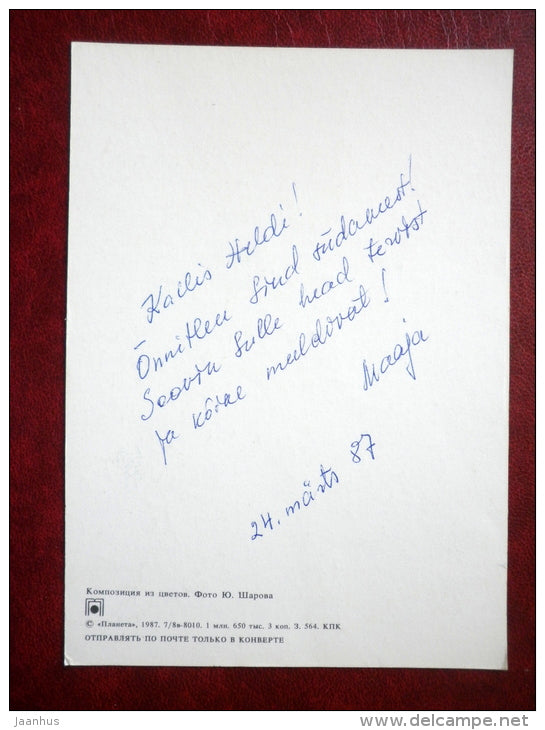 Kallis Heldi!
Õnnitlen Sind südamest!
Soovin Sulle head tervist
ja kõike muldovat!
Maaja
24. märts 87
Композиция из цветов. Фото Ю. Шарова
© «Планета», 1987. 7/8в-8010. 1 млн. 650 тыс. 3 коп. З. 564. КПК
ОТПРАВЛЯТЬ ПО ПОЧТЕ ТОЛЬКО В КОНВЕРТЕ
jaanhus
www.delcampe.net